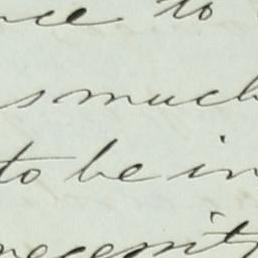 nce to
s much
to be in
necessity